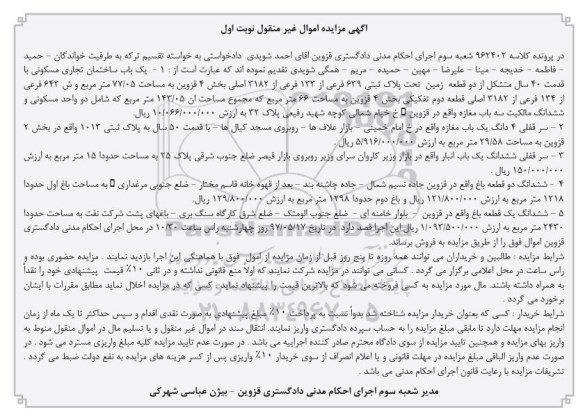 آگهی مزایده اموال غیر منقول نوبت اول
در پرونده کلاسه ۹۶۲۴۰۲ شعبه سوم اجرای احکام مدنی دادگستری قزوین اقای احمد شویدی دادخواستی به خواسته تقسیم ترکه به طرفیت خواندگان – حمید
– فاطمه – خدیجه – مینا – علیرضا – مهین – حمیده – مریم – همگی شویدی تقدیم نموده اند که عبارت است از : ۱ - یک باب ساختمان تجاری مسکونی با
قدمت ۴۰ سال متشکل از دو قطعه زمین تحت پلاک ثبتی ۶۳۹ فرعی از ۱۲۳ فرعی از ۳۱۸۲ اصلی بخش ۴ قزوین به مساحت ۷۷/۰۵ متر مربع و ش ۶۴۳ فرعی
از ۱۳۴ فرعی از ۳۱۸۲ اصلی قطعه دوم تفکیکی بخش ۴ قزوین به مساحت ۶۶ متر مربع که مجموع مساحت ان ۱۴۳/۰۵ متر مربع که شامل دو واحد مسکونی و
ششدانگ مالکیت سه باب مغازه واقع در قزوین خ خیام شمالی کوچه شهید رفیعی پلاک ۳۲ به ارزش ۱۰/۰۶۶/۰۰۰/۰۰۰ ریال.
۲ – سر قفلی ۴ دانگ یک باب مغازه واقع در خ امام خمینی – بازار علاف ها – روبروی مسجد کیال ها – با قدمت ۵۰ سال به پلاک ثبتی ۱۰۱۲ واقع در بخش ۲
قزوین به مساحت ۲۹/۵۸ متر مربع به ارزش ۵/۹۱۶/۰۰۰/۰۰۰ ریال .
۳ – سر قفلی ششدانگ یک باب انبار واقع در بازار وزیر کاروان سرای وزیر روبروی بازار قیصر ضلع جنوب شرقی پلاک ۲۵ به مساحت حدودا ۱۵ متر مربع به ارزش
۱۵۰/۰۰۰/۰۰۰ ریال .
۴ - ششدانگ دو قطعه باغ واقع در قزوین جاده نسیم شمال – جاده چاشته بند – بعد از قهوه خانه قاسم مختار – ضلع جنوبی مرغداری به مساحت باغ اول حدودا
۱۲۱۸ متر مربع به ارزش ۱۲۱/۸۰۰/۰۰۰ ریال و باغ دوم حدودا ۱۲۹۸ متر مربع به ارزش ۱۲۹/۸۰۰/۰۰۰ ریال .
۵ – ششدانگ یک قطعه باغ واقع در قزوین – بلوار خامنه ای – ضلع جنوب الومتک – ضلع شرق کارگاه سنگ بری – باغهای پشت شرکت نفت به مساحت حدودا
۲۴۳۰ متر مربع به ارزش ۱/۰۹۳/۵۰۰/۰۰۰ ریال این اجرا قصد دارد در تاریخ ۹۷/۰۵/۱۷ روز چهارشنبه راس ساعت ۱۰/۳۰ در محل اجرای احکام مدنی دادگستری
قزوین اموال فوق را از طریق مزایده به فروش برساند.
شرایط مزایده : طالبین و خریداران می توانند همه روزه تا پنج روز قبل از زمان مزایده از اموال فوق با هماهنگی این اجرا بازدید نمایند . مزایده حضوری بوده و
راس ساعت در محل اعلامی برگزار می گردد . کسانی می توانند در مزایده شرکت نمایند که اولا منع قانونی نداشته و در ثانی ۱۰٪ قیمت پیشنهادی خود را نقداً
به همراه داشته باشند. مال مورد مزایده به کسی فروخته می شود که بالاترین قیمت را پیشنهاد نماید . کسی که در مزایده اخلال نماید مطابق مقررات با ایشان
برخورد می گردد .
شرایط خریدار : کسی که بعنوان خریدار مزایده شناخته شد بدواً نسبت به پرداخت ۱۰٪ مبلغ پیشنهادی به صورت نقدی اقدام و سپس حداکثر تا یک ماه از زمان
انجام مزایده مهلت دارد تا مابقی مبلغ مزایده را به حساب سپرده دادگستری واریز نمایند. انتقال سند در اموال غیر منقول و یا تسلیم مال در اموال منقول منوط به
واریز بهای مزایده و همچنین تایید مزایده از سوی دادگاه محترم صادر کننده اجراییه می باشد . در صورت عدم تایید مزایده کلیه مبلغ واریزی مسترد می شود . در
صورت عدم واریز الباقی مبلغ مزایده در مهلت قانونی و یا اعلام انصراف از سوی خریدار ۱۰٪ واریزی پس از کسر هزینه های مزایده به نفع دولت ضبط می گردد .
تشریفات مزایده با رعایت قانون اجرای احکام مدنی می باشد .
مدیر شعبه سوم اجرای احکام مدنی دادگستری قزوین – بیژن عباسی شهرکی